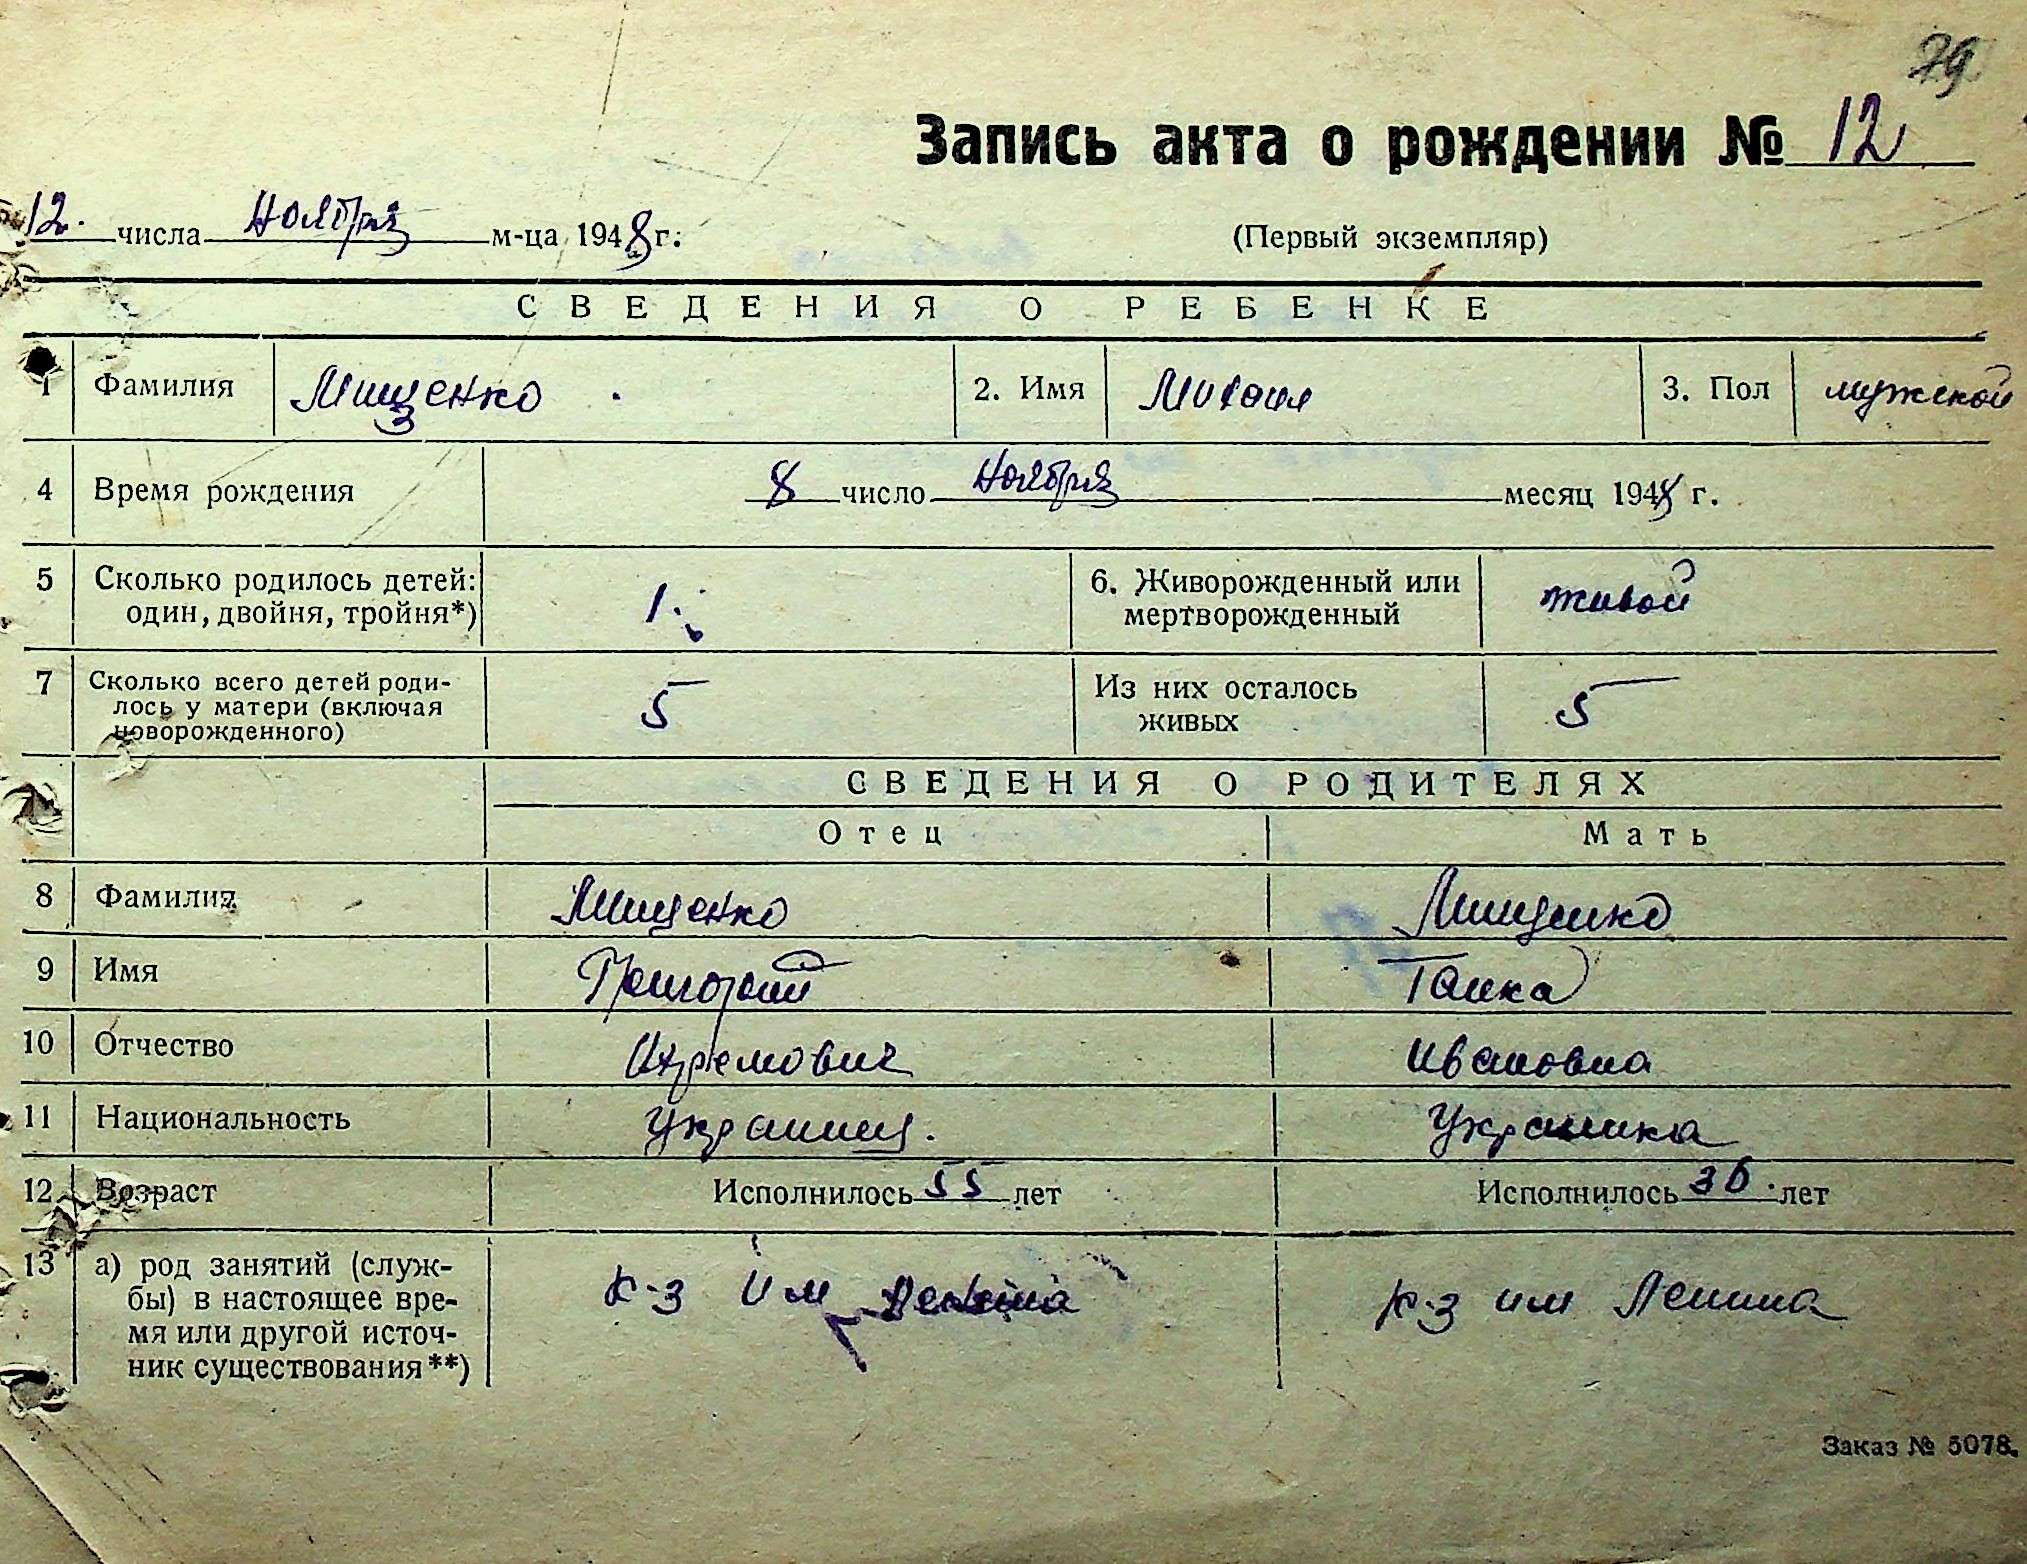 79
Запись акта о рождении № 12
12. числа Ноября м-ца 1948 г.
(Первый экземпляр)
СВЕДЕНИЯ О РЕБЕНКЕ
1 Фамилия Мищенко 2. Имя Михаил 3. Пол мужской
4 Время рождения 8 число Ноября месяц 1948 г.
5 Сколько родилось детей: 1. 6. Живорожденный или живой
один, двойня, тройня*) мертворожденный
7 Сколько всего детей роди- 5 Из них осталось 5
лось у матери (включая живых
новорожденного)
СВЕДЕНИЯ О РОДИТЕЛЯХ
Отец Мать
8 Фамилия Мищенко Мищенко
9 Имя Григорий Ганка
10 Отчество Ивановна
11 Национальность Украинец. Украинка
12 Возраст Исполнилось 55 лет Исполнилось 36. лет
13 а) род занятий (служ- к-з им Ленина к-з им Ленина
бы) в настоящее вре-
мя или другой источ-
ник существования**)
Заказ № 5078.